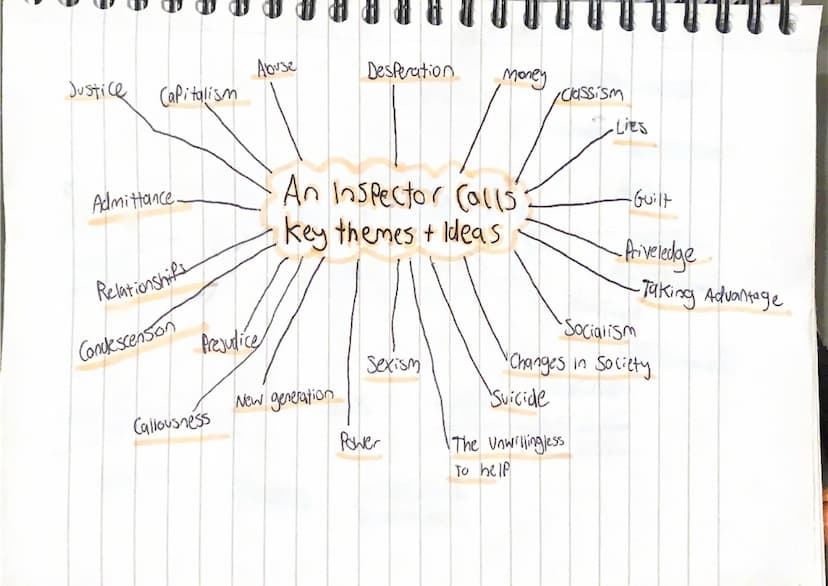 Abuse
Desperation
Money
Justice
Capitalism
Classism
Lies
Admittance
An Inspector Calls
Key themes + Ideas
Guilt
Priveledge
Relationships
Taking Advantage
Condescenson
Prejudice
Socialism
Sexism
Changes in Society
New generation
Suicide
Callousness
Power
The Unwillingless
To help